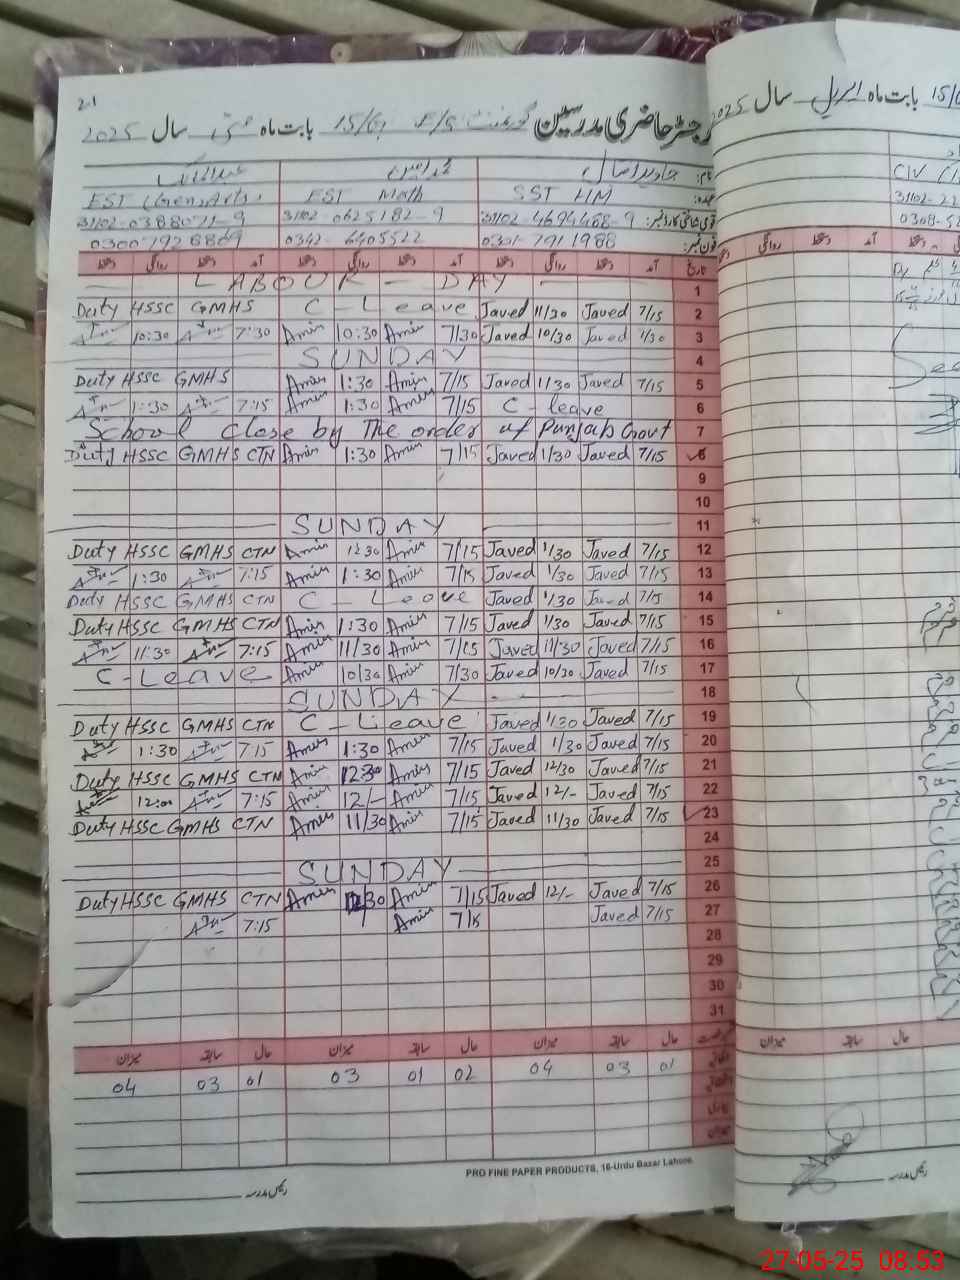 21
رجسٹر حاضری مدرسین گورنمنٹ E/S 15/G بابت ماہ مئی سال 2025
نام:
عہدہ: SST HM EST Math EST (Gen.Arts)
قومی شناختی کارڈ نمبر: 31102-4694468-9 31102-0625182-9 31102-0388071-9
فون نمبر: 0301-7911988 0342-6405522 0300 7926869
تاریخ آمد دستخط روانگی دستخط آمد دستخط روانگی دستخط آمد دستخط روانگی دستخط
LABOUR DAY 1
Duty HSSC GMHS C - Leave Javed 11/30 Javed 7/15 2
10:30 7:30 Amin 10:30 Amin 7/30 Javed 10/30 Javed 7/30 3
SUNDAY 4
Duty HSSC GMHS Amin 1:30 Amin 7/15 Javed 11/30 Javed 7/15 5
1:30 7:15 Amin 1:30 Amin 7/15 C - leave 6
School close by The order of Punjab Govt 7
Duty HSSC GMHS CTN Amin 1:30 Amin 7/15 Javed 1/30 Javed 7/15 8
9
10
SUNDAY 11
Duty HSSC GMHS CTN Amin 12:30 Amin 7/15 Javed 1/30 Javed 7/15 12
1:30 7:15 Amin 1:30 Amin 7/15 Javed 1/30 Javed 7/15 13
Duty HSSC GMHS CTN C - Leave Javed 1/30 Javed 7/15 14
Duty HSSC GMHS CTN Amin 1:30 Amin 7/15 Javed 1/30 Javed 7/15 15
11:30 7:15 Amin 11/30 Amin 7/15 Javed 11/30 Javed 7/15 16
C - Leave Amin 10/30 Amin 7/30 Javed 10/30 Javed 7/15 17
SUNDAY 18
Duty HSSC GMHS CTN C - Leave Javed 1/30 Javed 7/15 19
1:30 7:15 Amin 1:30 Amin 7/15 Javed 1/30 Javed 7/15 20
Duty HSSC GMHS CTN Amin 12:30 Amin 7/15 Javed 12/30 Javed 7/15 21
12:00 7:15 Amin 12/- Amin 7/15 Javed 12/- Javed 7/15 22
Duty HSSC GMHS CTN Amin 11/30 Amin 7/15 Javed 11/30 Javed 7/15 23
24
SUNDAY 25
Duty HSSC GMHS CTN Amin 12/30 Amin 7/15 Javed 12/- Javed 7/15 26
7:15 Amin 7/15 Javed 7/15 27
28
29
30
31
حال سابقہ میزان حال سابقہ میزان حال سابقہ میزان
04 03 01 03 01 02 04 03 01
PRO FINE PAPER PRODUCTS, 16-Urdu Bazar Lahore.
رئیس مدرسہ
بابت ماہ اپریل سال 2025
31102-22
0308-52
آمد دستخط روانگی
حال سابقہ میزان
رئیس مدرسہ
27-05-25 08:53